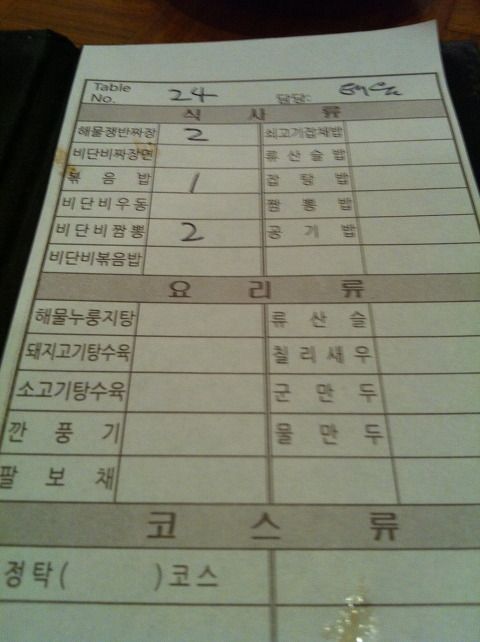 Table No. 24 담당:
식 사 류
해물쟁반짜장 2 쇠고기잡채밥
비단비짜장면 류산슬밥
볶음밥 1 잡탕밥
비단비우동 짬뽕밥
비단비짬뽕 2 공기밥
비단비볶음밥
요 리 류
해물누룽지탕 류산슬
돼지고기탕수육 칠리새우
소고기탕수육 군만두
깐풍기 물만두
팔보채
코 스 류
정탁( )코스